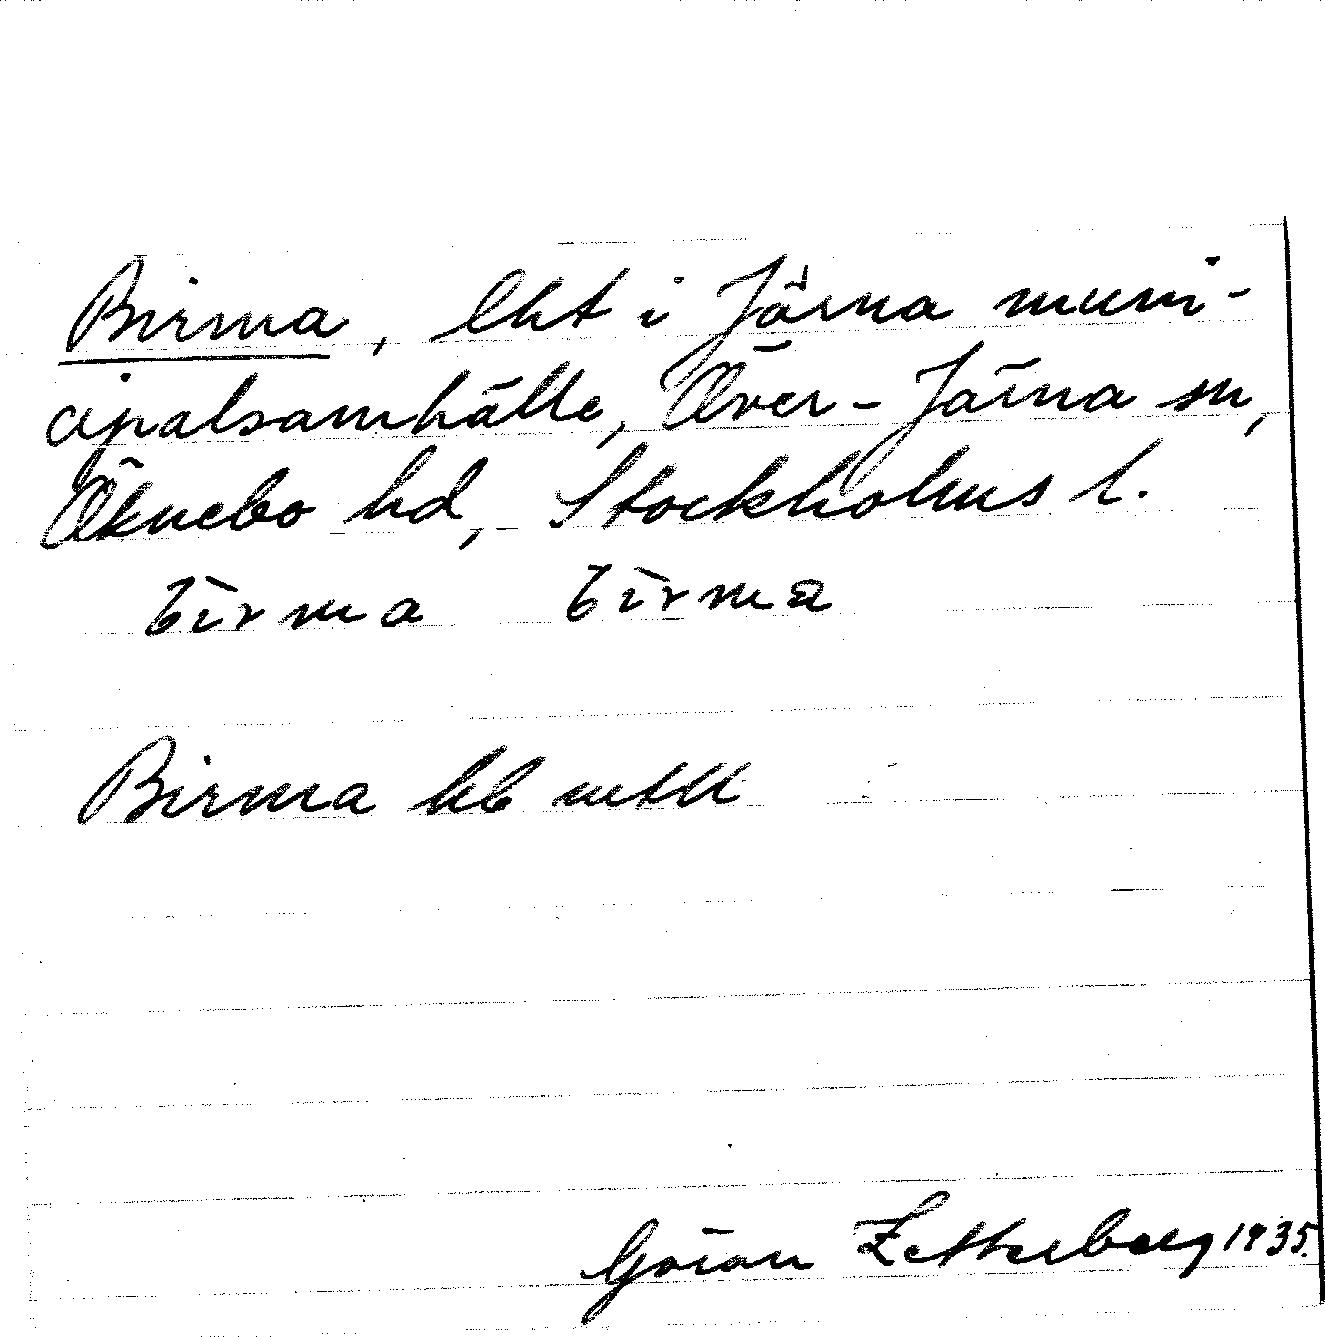 Birma, lht i Järna muni-
cipalsamhälle, Över-Järna sn,
Öknebo hd, Stockholms l.
bìrma bìrma
Birma
Göran Zetterberg 1935.